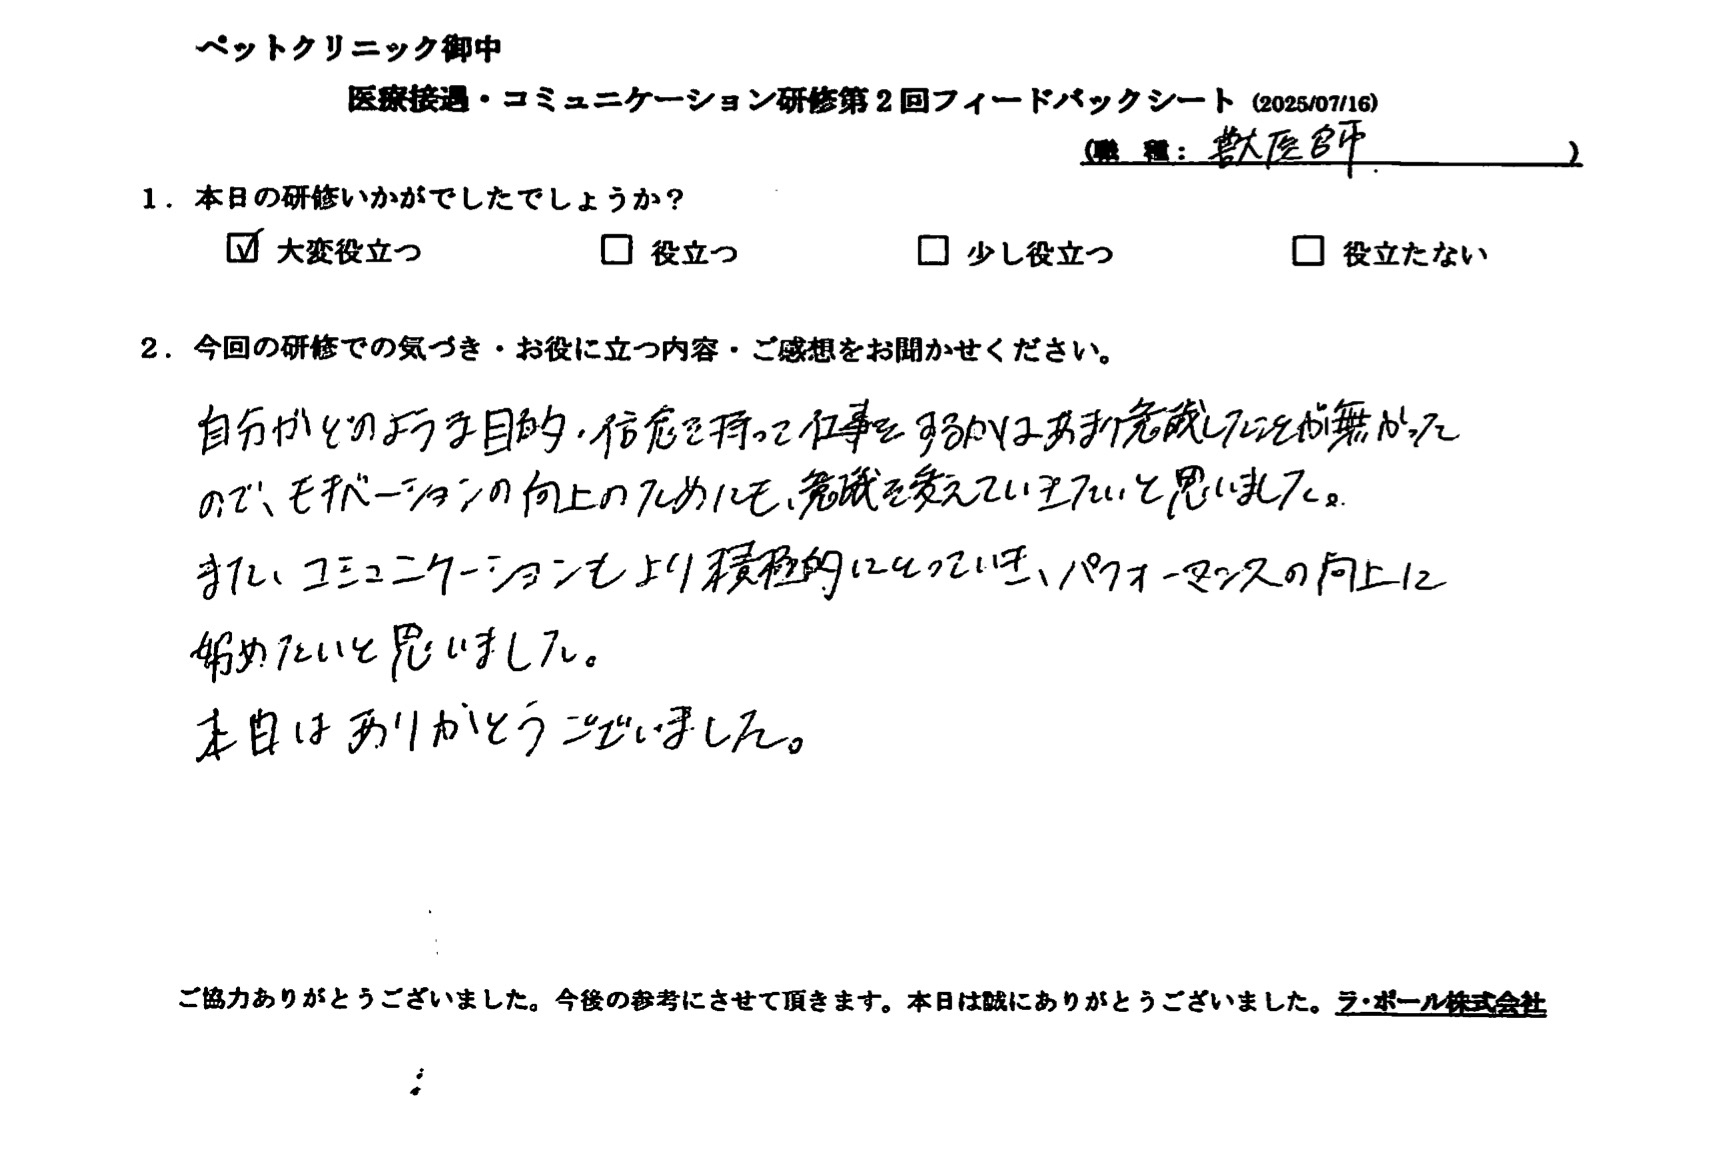 ペットクリニック御中
医療接遇・コミュニケーション研修第2回フィードバックシート (2025/07/16)
(職 種: 獣医師 )
1. 本日の研修いかがでしたでしょうか?
☑ 大変役立つ □ 役立つ □ 少し役立つ □ 役立たない
2. 今回の研修での気づき・お役に立つ内容・ご感想をお聞かせください。
自分がどのような目的・信念を持って仕事をするかはあまり意識したことが無かった
ので、モチベーションの向上のためにも、意識を変えていきたいと思いました。
また、コミュニケーションもより積極的にとっていき、パフォーマンスの向上に
始めたいと思いました。
本日はありがとうございました。
ご協力ありがとうございました。今後の参考にさせて頂きます。本日は誠にありがとうございました。ラ・ポール株式会社